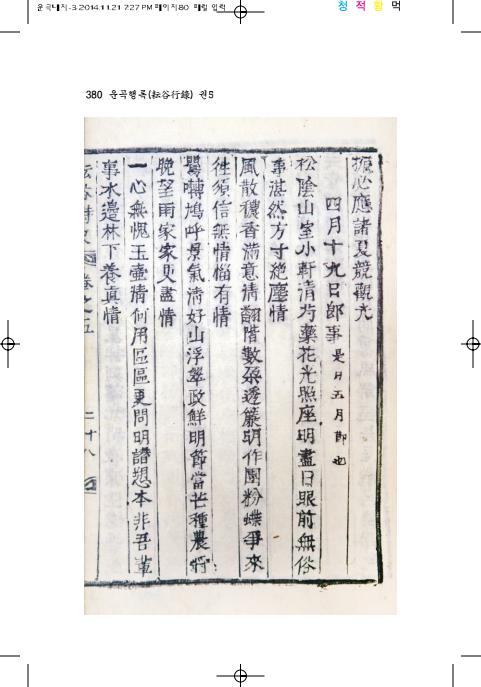 운곡내지-3 2014.11.21 7:27 PM 페이지80 매월 입력
청 적 황 먹
380 운곡행록(耘谷行錄) 권5
擴心應諸夏競觀光
四月十九日郎事 是日五月節也
松陰山室小軒清芍藥花光照座明盡日眼前無俗
事湛然方寸絶塵情
風散穠香滿意清翻階數朶透簾明作團粉蝶爭來
徃須信無情惱有情
鸎囀鳩呼景氣清好山浮翠政鮮明節當芒種農將
晚望雨家家只盡情
一心無愧玉壺清何用區區更問明譛愬本非吾軰
事水邉林下養真情
卷之五
二十八